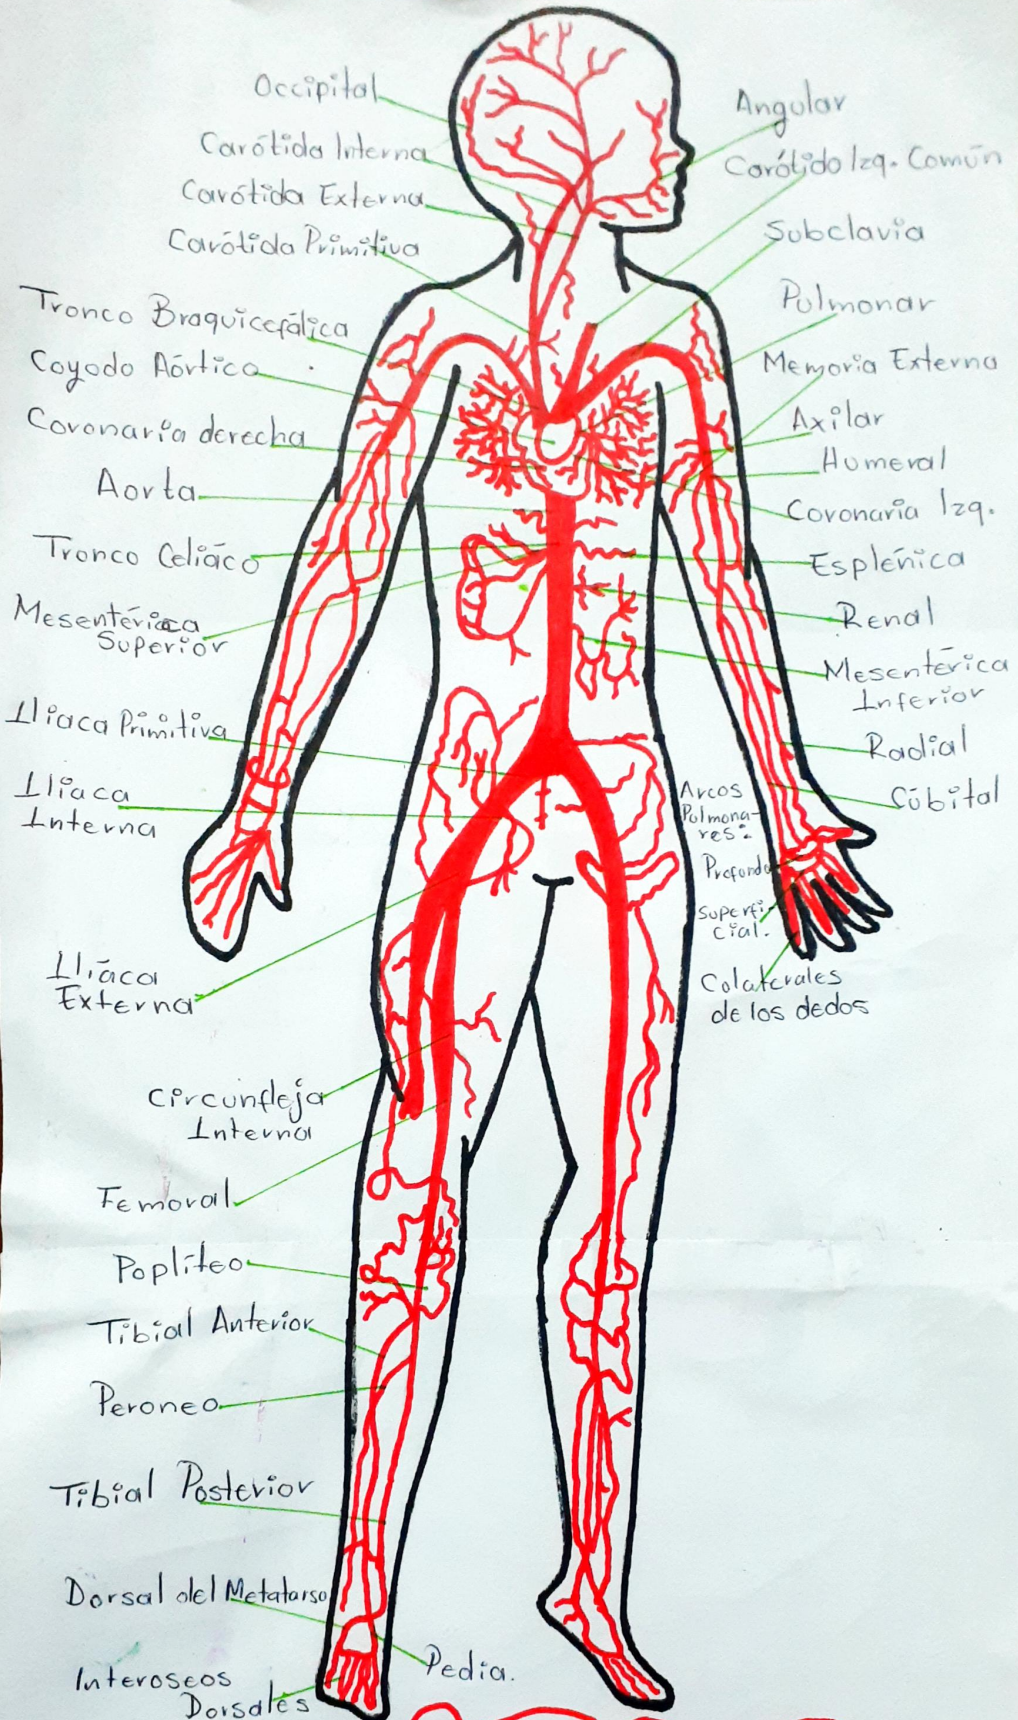 Occipital
Carótida Interna
Carótida Externa
Carótida Primitiva
Tronco Braquicefálica
Coyodo Aórtico
Coronaria derecha
Aorta
Tronco Celiáco
Mesentérica
Superior
Iliaca Primitiva
Iliaca
Interna
Ilíaca
Externa
Circunfleja
Interna
Femoral
Poplíteo
Tibial Anterior
Peroneo
Tibial Posterior
Dorsal del Metatarso
Interoseos
Dorsales
Pedia.
Angular
Carótido Izq. Común
Subclavia
Pulmonar
Memoria Externa
Axilar
Humeral
Coronaria Izq.
Esplénica
Renal
Mesentérica
Inferior
Radial
Cúbital
Arcos
Pulmona-
res:
Profundo
Superfi-
cial.
Colaterales
de los dedos